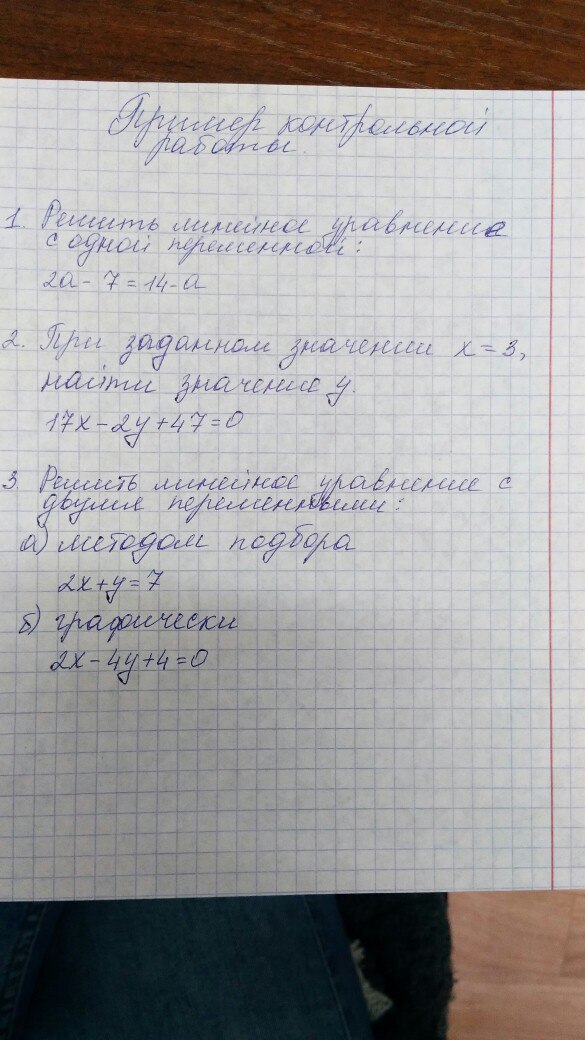 Пример контрольной
работы.
1. Решить линейное уравнение
с одной переменной:
2а - 7 = 14 - а
2. При заданном значении х = 3,
найти значение у.
17х - 2у + 47 = 0
3 Решить линейное уравнение с
двумя переменными:
а) методом подбора
2х + у = 7
б) графически
2х - 4у + 4 = 0